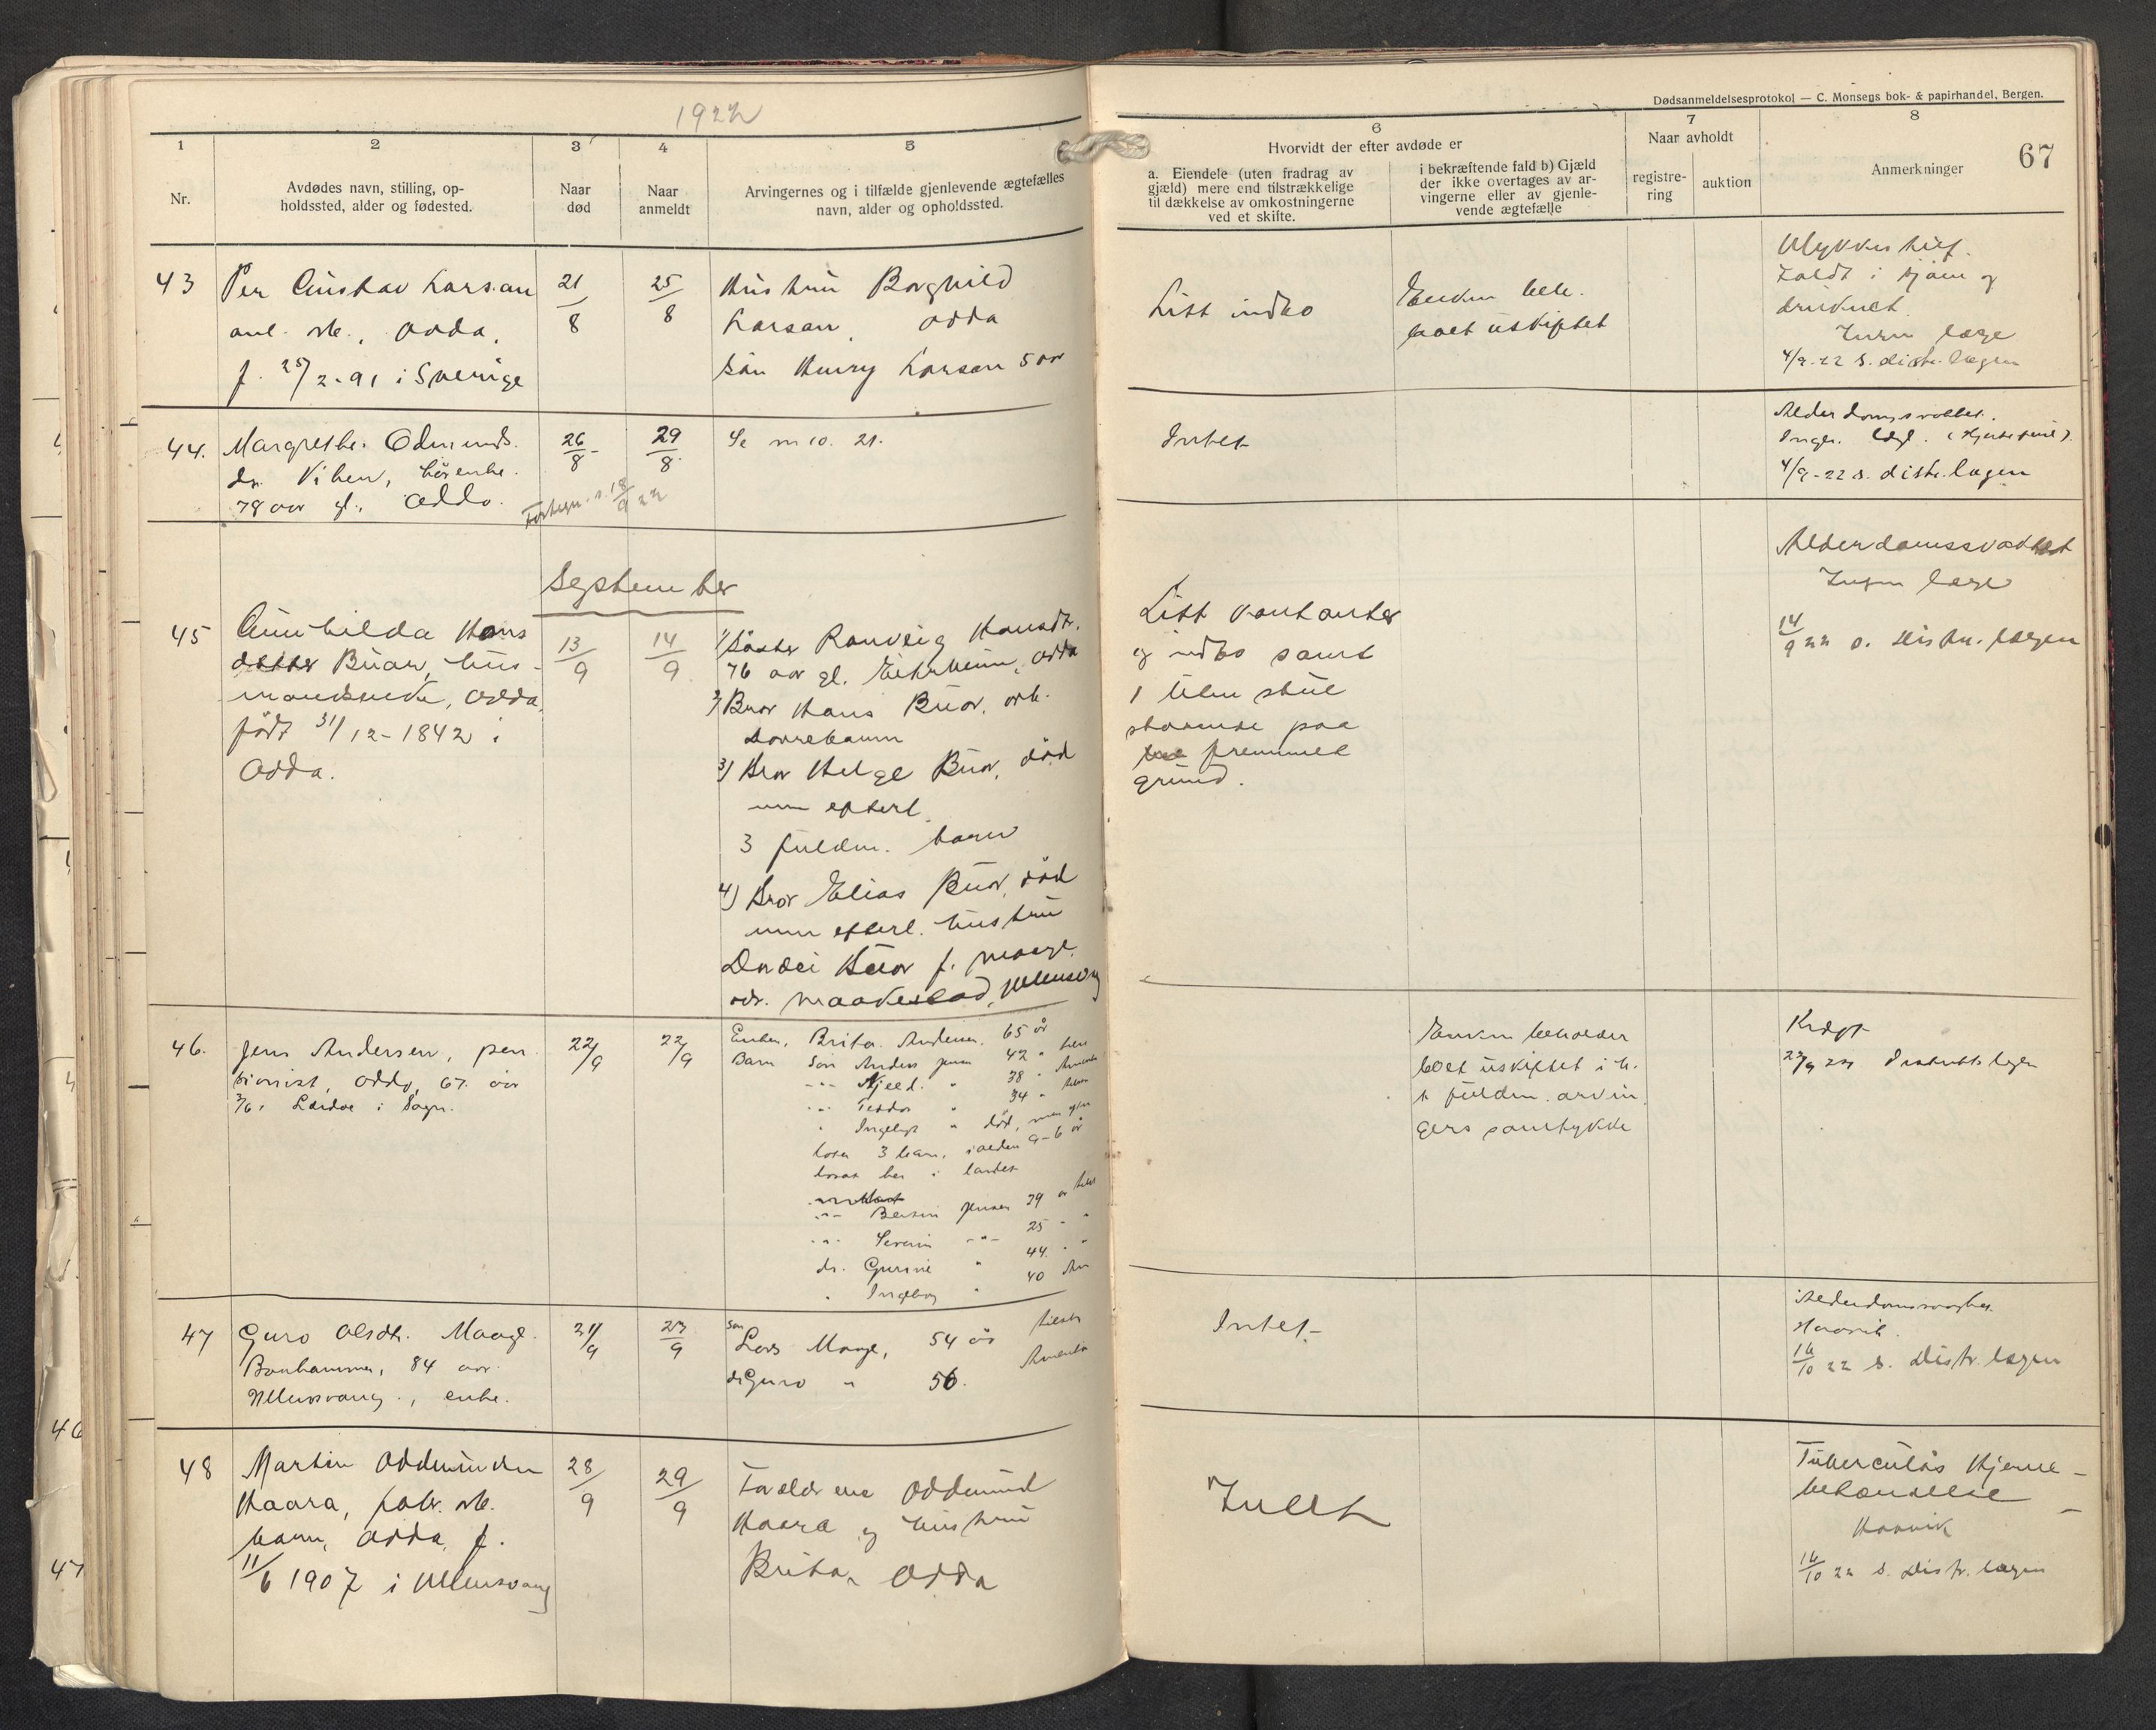 1922
Dødsanmeldelsesprotokol — C. Monsens bok- & papirhandel, Bergen.
67
1
2
3
4
5
6
7
8
Nr.
Avdødes navn, stilling, op-
holdssted, alder og fødested.
Naar
død
Naar
anmeldt
Arvingernes og i tilfælde gjenlevende ægtefælles
navn, alder og opholdssted.
Hvorvidt der efter avdøde er
a. Eiendele (uten fradrag av
gjæld) mere end tilstrækkelige
til dækkelse av omkostningerne
ved et skifte.
i bekræftende fald b) Gjæld
der ikke overtages av ar-
vingerne eller av gjenle-
vende ægtefælle
Naar avholdt
registre-
ring
auktion
Anmerkninger
43
Per Gustav Larsen
anl. arb., Odda,
f. 25/2-91 i Sverige
21/8
25/8
Hustru Borghild
Larsen, Odda
Søn Henry Larsen 5 aar
Litt indbo
Enken beh.
boet uskiftet
Ulykkestilf.
Faldt i sjøen og
druknet.
Ingen læge
4/9-22 s. distr. lægen
44.
Margrethe Odmunds-
dr. Viken,
78 aar gl., Odda.
26/8
29/8
Se nr 10. 21.
18/9 22
Intet
Alderdomssvakhet.
Ingen læge.
4/9-22 s. distr. lægen
September
45
Gunhilda Hans
datter Buar, hus-
mandsenke, Odda,
født 31/12-1842 i
Odda.
13/9
14/9
1) Søster Ranveig Hansdtr.
76 aar gl. Eitrheim, Odda
2) Bror Hans Buar, arb.
3) Bror Helge Buar, død
men efterl.
3 fuldm. barn
4) Bror Elias Buar, død
men efterl. hustru
Buar f. Maage
adr. Maakestad, Ullensvang
Litt kontanter
og indbo samt
1 liten stue
staaende paa
fremmed
grund.
Alderdomssvakhet
Ingen læge
14/9 22 s. distr. lægen
46.
Jens Andersen, pen-
sionist, Odda, 67 aar
Lærdal i Sogn.
22/9
22/9
Enken, Brita Andersen, 65 år
Barn Søn Anders Jensen 42 "
-"- Kjell. " 38 " Amerika
-"- Teodor " 34 "
" Ingelbrigt " død, men efter
later 3 barn, i alderen 9-6 år
bosat her i landet
-"- Bertin Jensen 29 år
-"- Severin -"- 25 " "
dr. Gurine " 44 " "
" Ingeborg " 40 Am
Enken beholder
boet uskiftet i h.
t fuldm. arvin
gers samtykke
Kræft
22/9 22 Distriktslægen
47
Guro Olsdtr. Maage.
84 aar.
Ullensvang, enke.
21/9
23/9
søn Lars Maage, 54 år
dr Guro " 56. Amerika
Intet.
Alderdomssvaghet
Haavik.
16/10 22 s. Distr. lægen
48
Martin Oddmunden
Haara, fabr. arb.
barn, Odda, f.
11/6 1907 i Ullensvang
28/9
29/9
Forældrene Oddmund
Haara og hustru
Brita, Odda
Intet
Tuberculøs Hjerne-
betændelse
Haavik
16/10 22 s. Distr. lægen
46
47